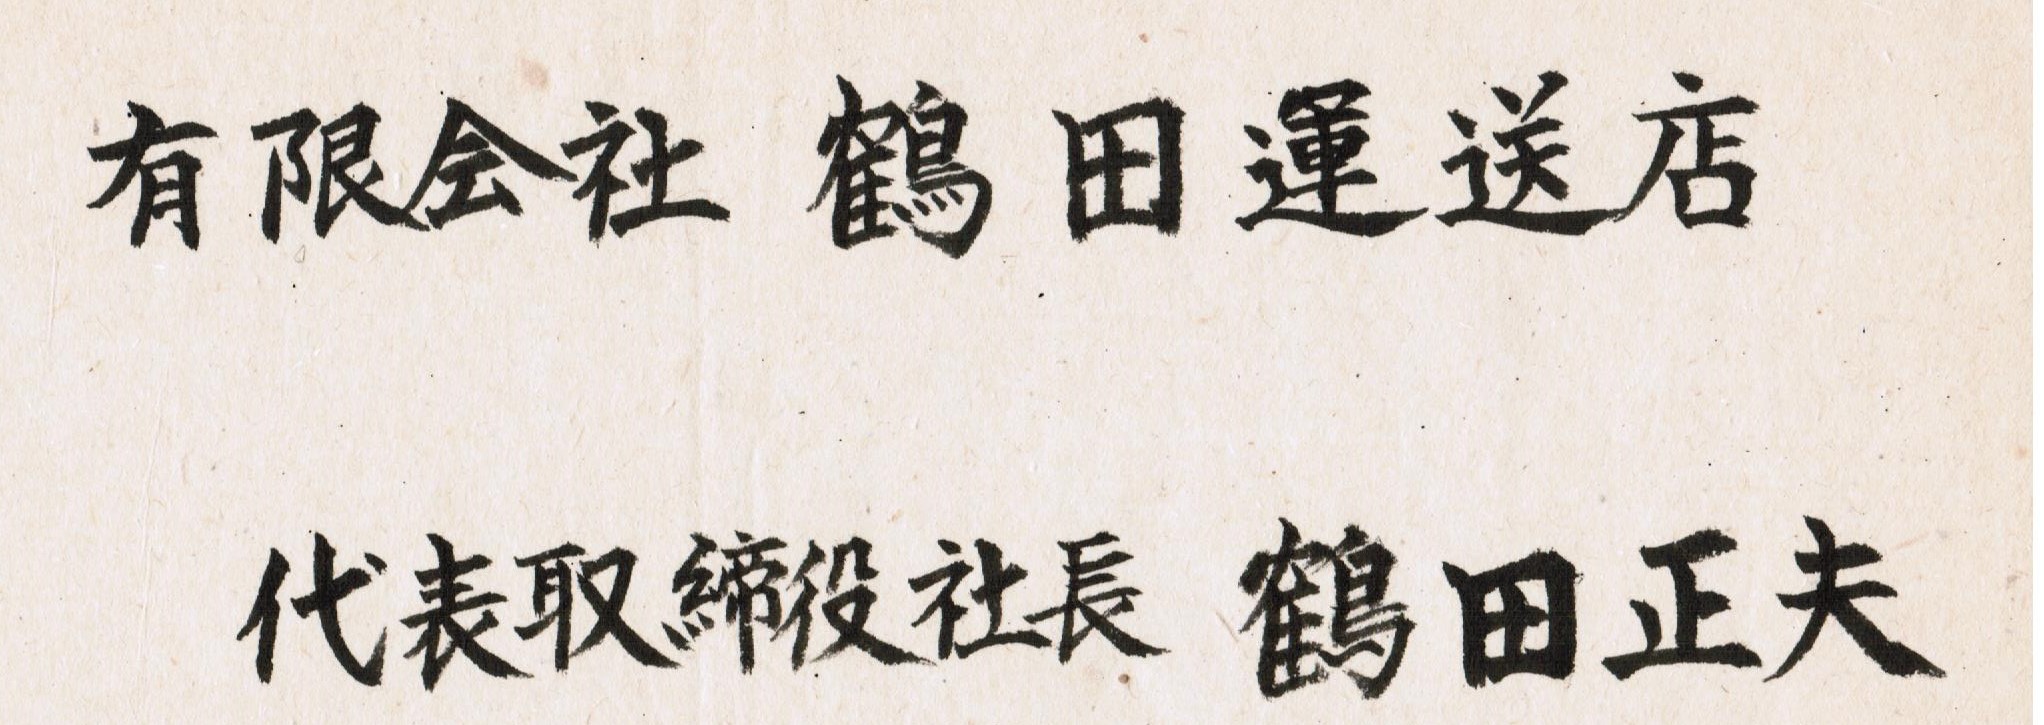 有限会社 鶴田運送店
代表取締役社長 鶴田正夫